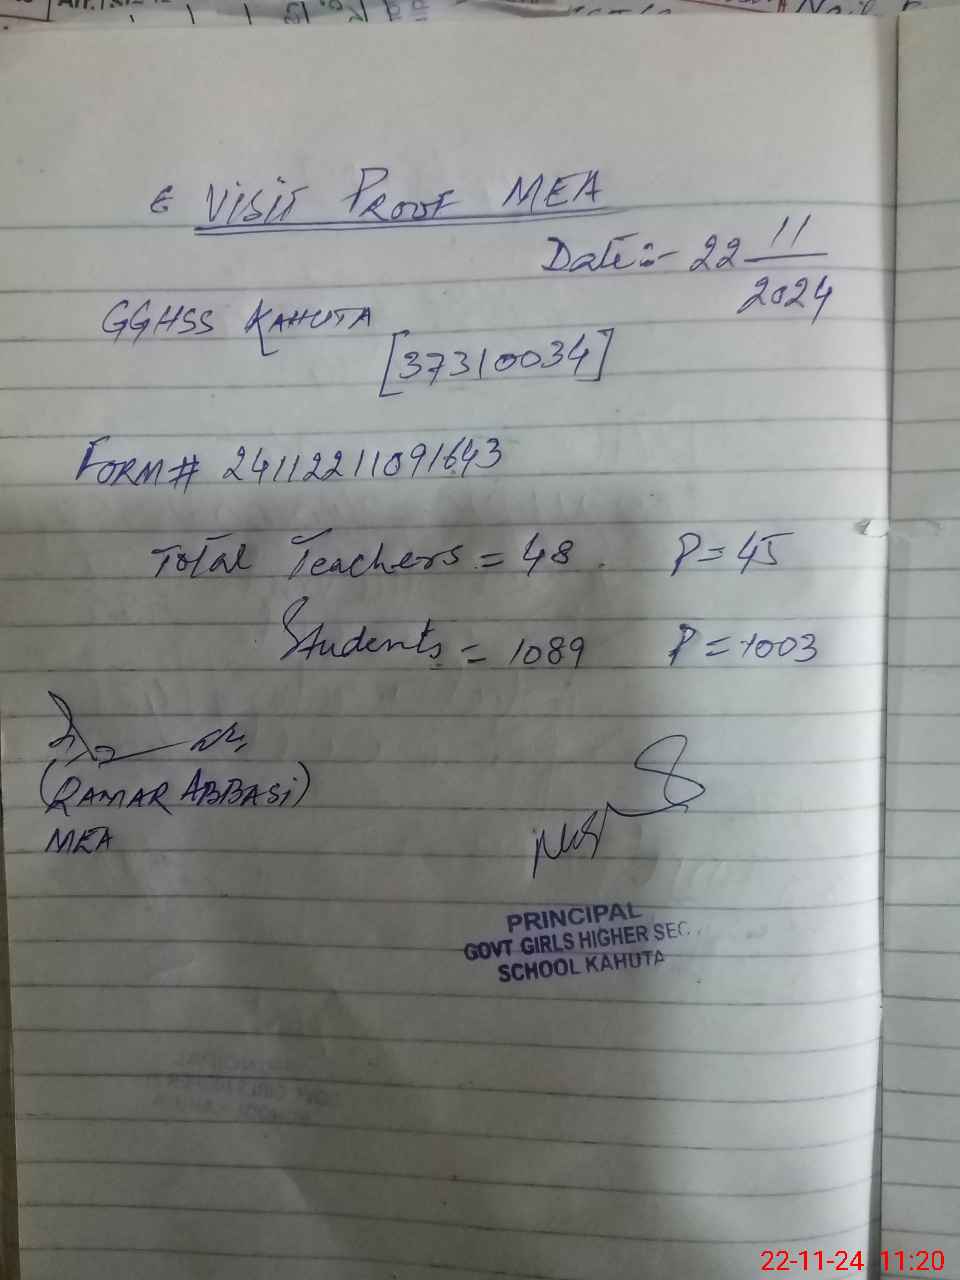 E VISIT PROOF MEA
Date:- 22 11/2024
GGHSS KAHUTA
[37310034]
FORM# 24112211091643
Total Teachers = 48. P=45
Students = 1089 P=1003
(QAMAR ABBASi)
MEA
PRINCIPAL
GOVT GIRLS HIGHER SEC.
SCHOOL KAHUTA
22-11-24 11:20